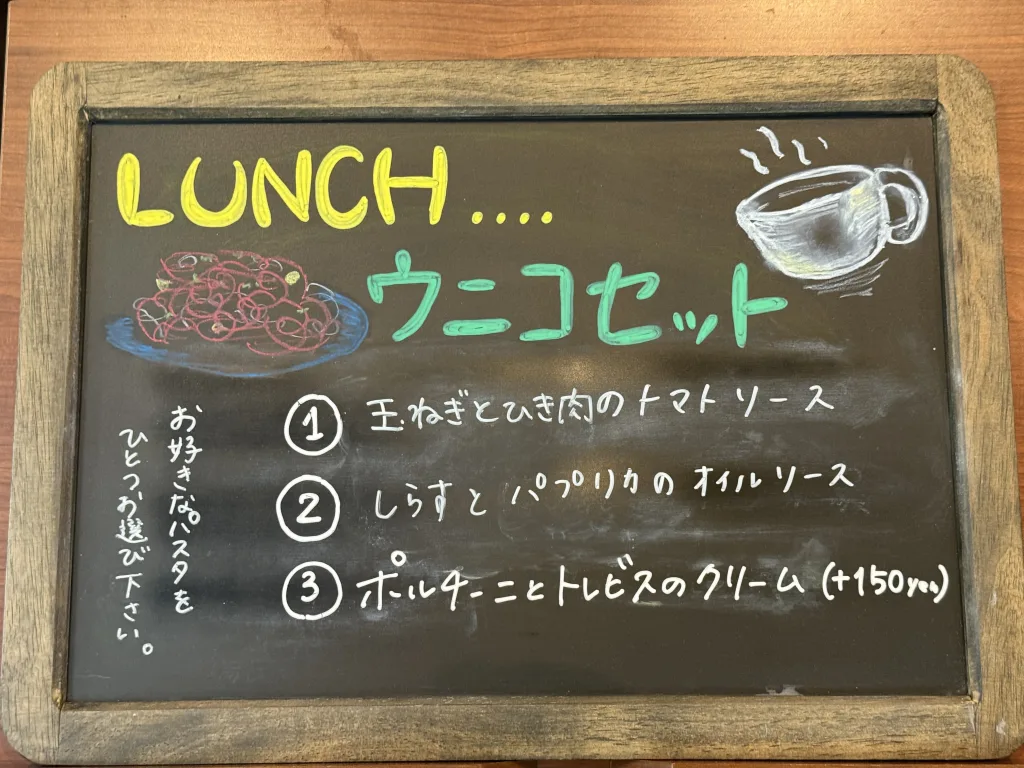 LUNCH ....
ウニコセット
① 玉ねぎとひき肉のトマトソース
② しらすとパプリカのオイルソース
③ ポルチーニとトレビスのクリーム (+150yen)
お好きなパスタを
ひとつお選び下さい。